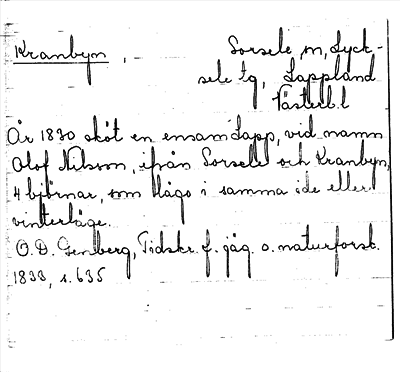 Kranbyn, Sorsele sn, Lyck-
sele tg, Lappland
Västerb. l
År 1830 sköt en ensam Lapp, vid namn
Olof Nilsson, ifrån Sorsele och Kranbyn,
4 björnar, som lågo i samma ide eller
vinterläge.
O. D. Tidskr. f. jäg. o. naturforsk.
1833, s. 635